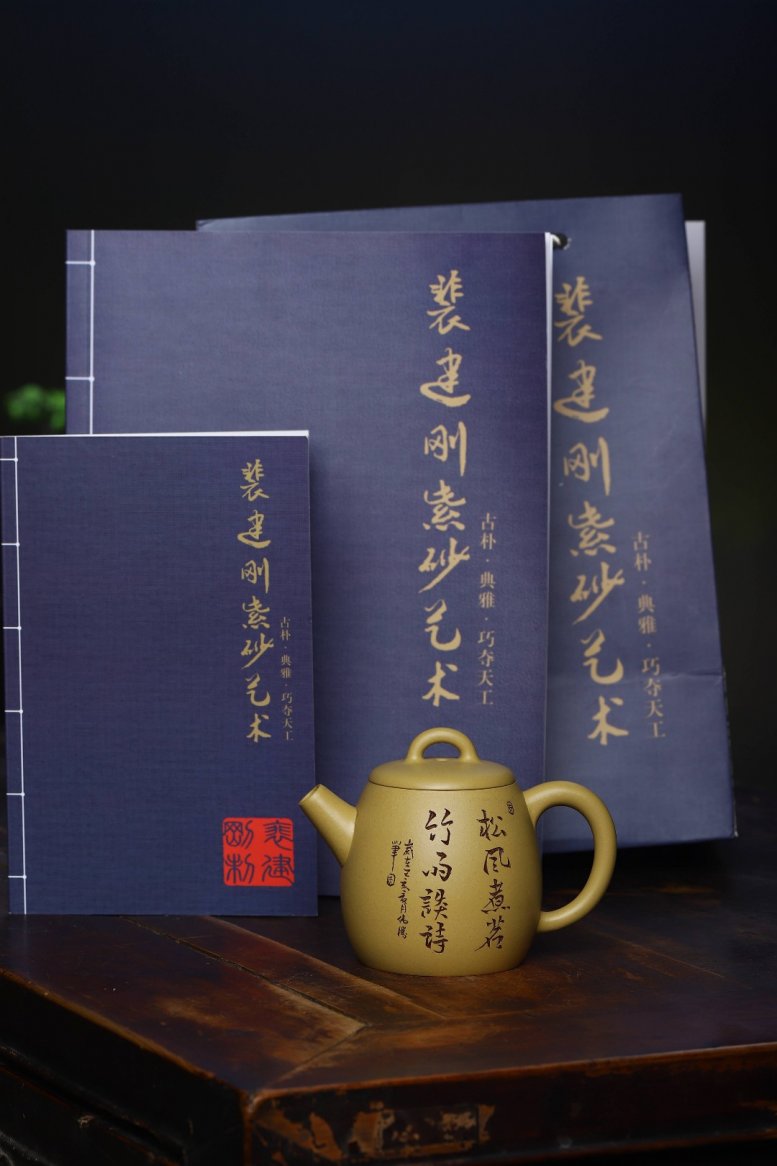 裴建刚紫砂艺术
古朴·典雅·巧夺天工
裴建刚紫砂艺术
古朴·典雅·巧夺天工
裴建刚紫砂艺术
古朴·典雅·巧夺天工
裴建
刚制
松风煮茗
竹雨談詩